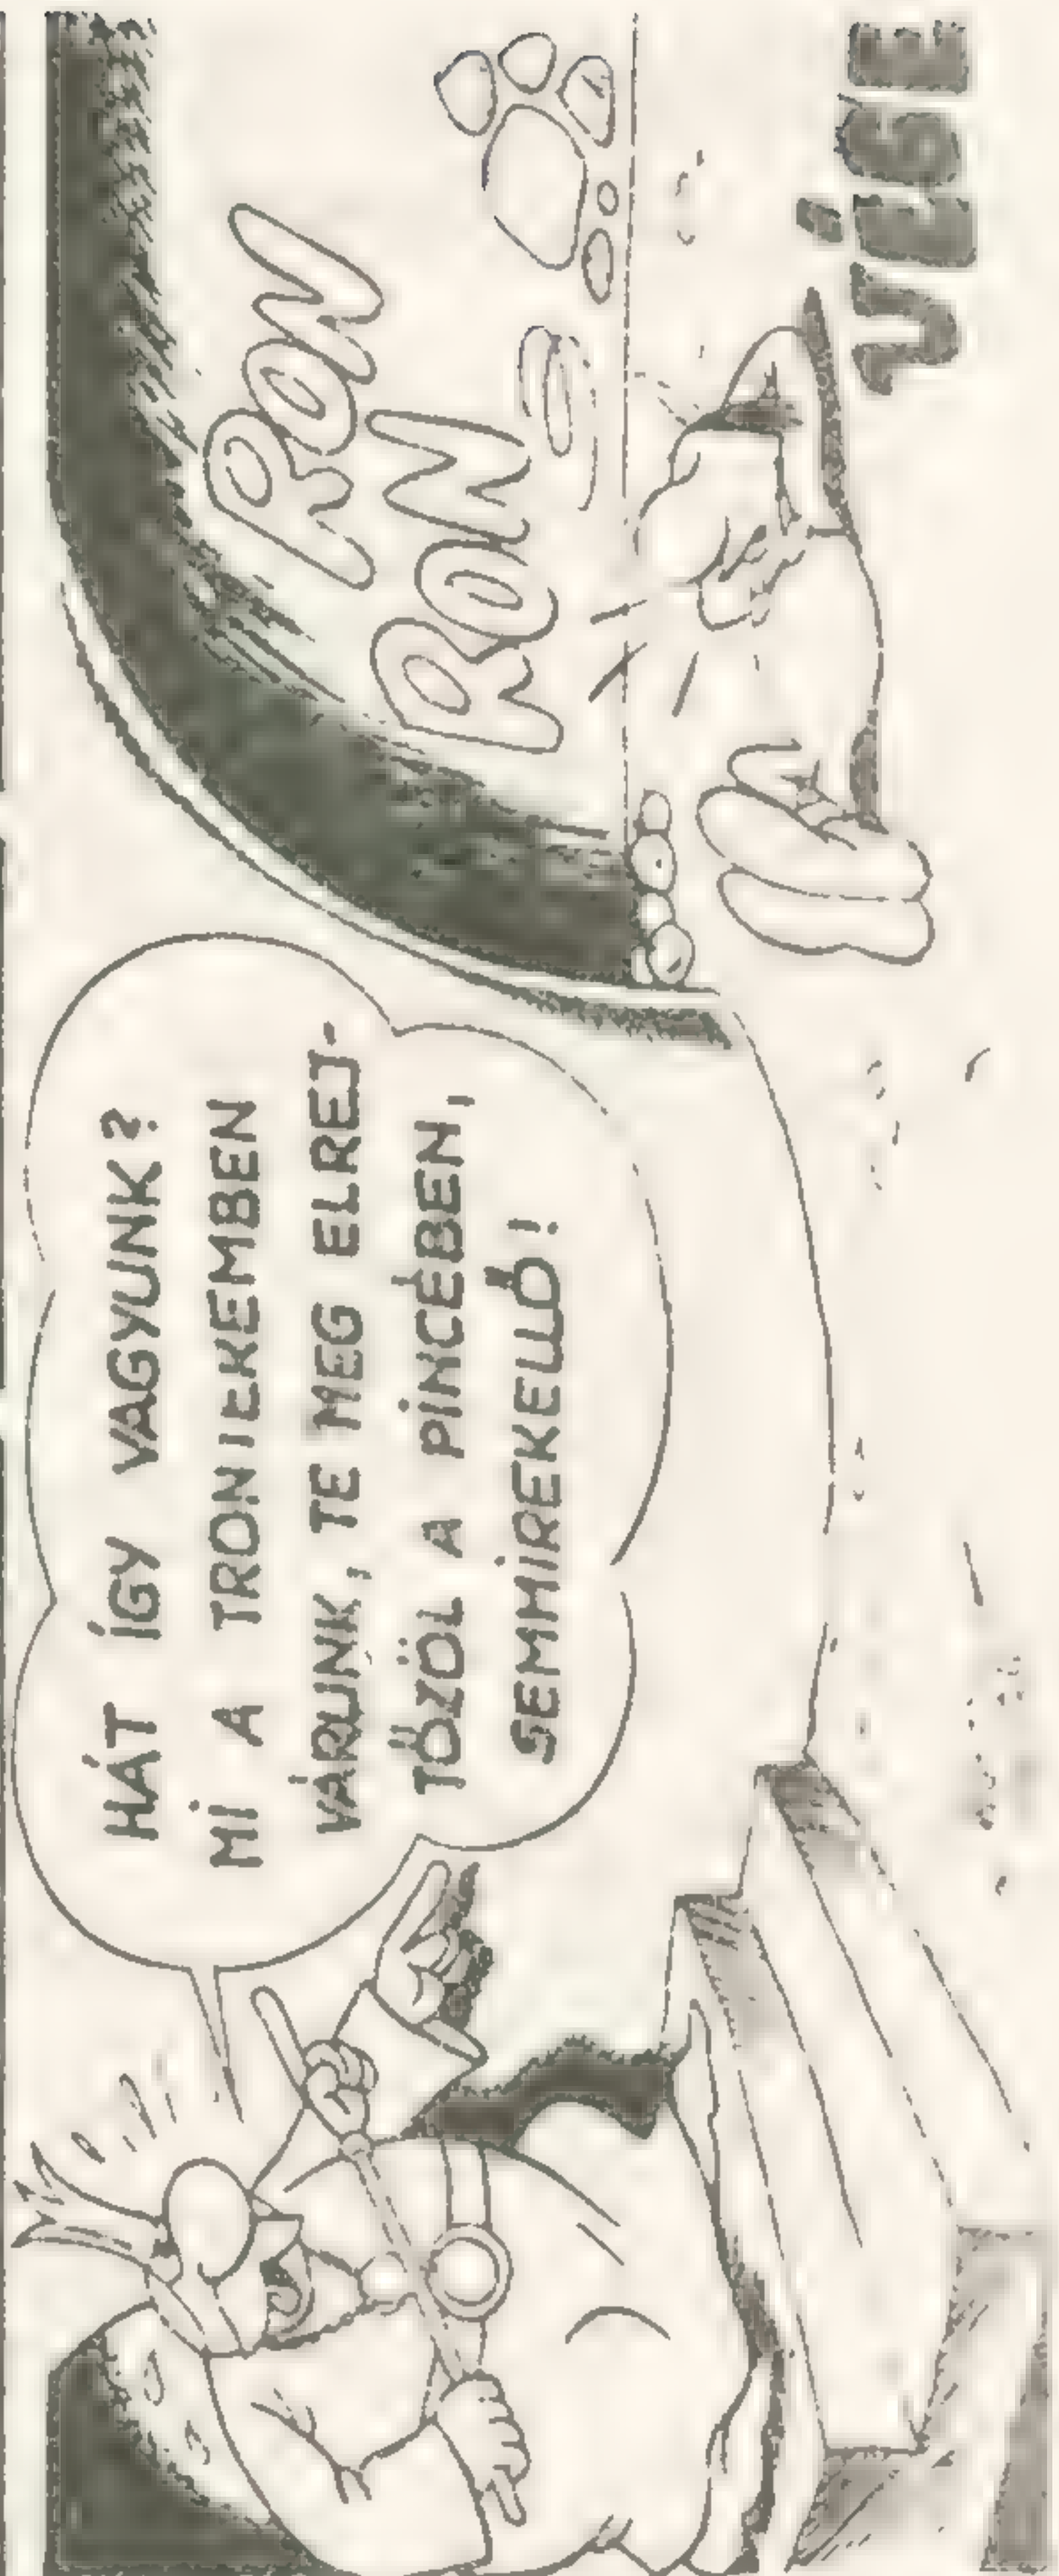 HÁT ÍGY VAGYUNK?
MI A TRONTEREMBEN
VÁRUNK, TE MEG ELREJ-
TŐZÖL A PINCÉBEN,
SEMMIREKELLŐ!
RON
RON
VÉGE